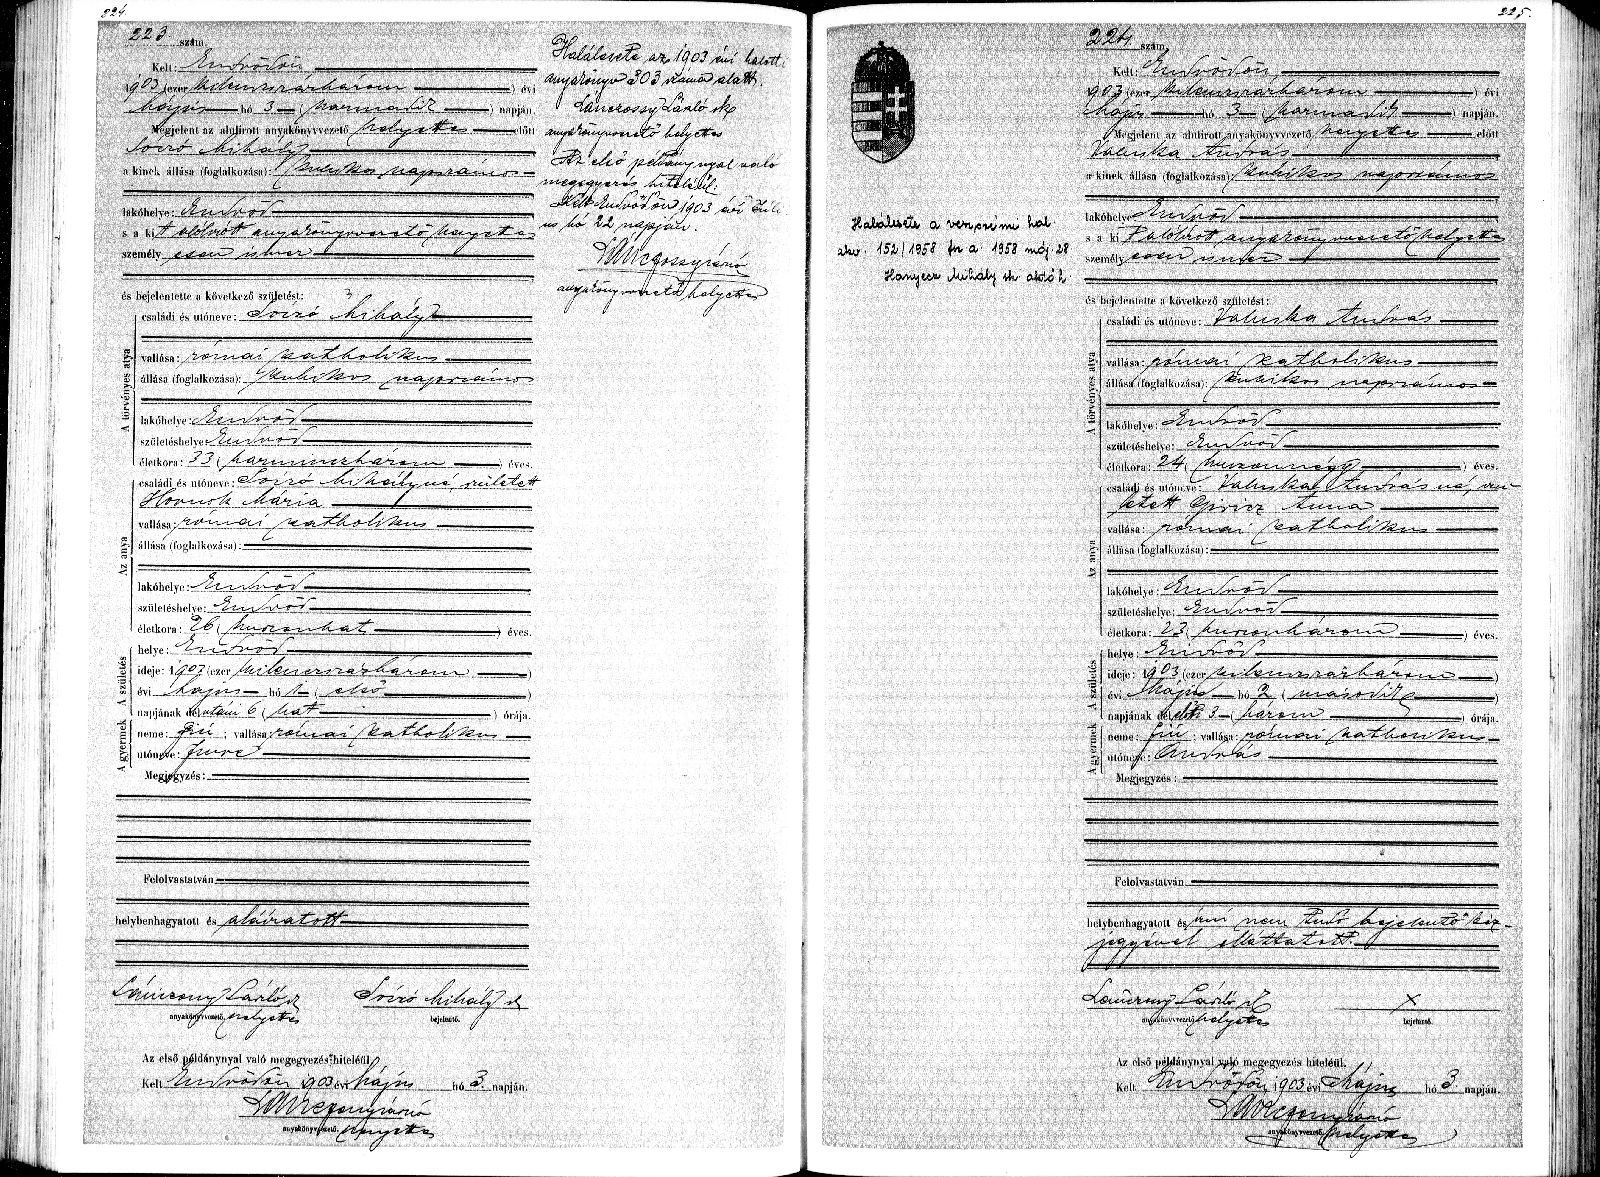 224
223 szám.
Kelt: Endrődön
1903 (ezer kilencszázhárom) évi
május hó 3 (harmadik) napján.
Megjelent az alulirott anyakönyvvezető helyettes előtt
Sziró Mihály
a kinek állása (foglalkozása): kubikos napszámos
lakóhelye Endrőd
s a kit alólirott anyakönyvvezető helyettes
személyesen ismer
és bejelentette a következő születést:
A törvényes atya
családi és utóneve: Sziró Mihály
vallása: római katholikus
állása (foglalkozása): kubikos napszámos
lakóhelye: Endrőd
születéshelye: Endrőd
életkora: 33 (harminczhárom) éves.
Az anya
családi és utóneve: Sziró Mihályné, született
Hornok Mária
vallása: római katholikus
állása (foglalkozása):
lakóhelye: Endrőd
születéshelye: Endrőd
életkora: 26 (huszonhat) éves.
A születés
helye: Endrőd
ideje: 1903 (ezer kilenczszázhárom)
évi május hó 1 (első)
napjának délutáni 6 (hat) órája.
A gyermek
neme: fiú; vallása: római katholikus
utóneve: Imre
Megjegyzés:
Felolvastatván
helybenhagyatott és aláiratott
Lánczossy László sk Sziró Mihály sk
anyakönyvvezető helyettes bejelentő.
Az első példánynyal való megegyezés hiteléül.
Kelt Endrődön 1903 évi Május hó 3. napján.
Lánczossy László
anyakönyvvezető helyettes
Halálesete az 1903 évi halotti
anyakönyv 303 száma alatt.
Lánczossy László sk
anyakönyvvezető helyettes
Az első példánynyal való
megegyezés hiteléül:
Kelt Endrődön 1903 évi Juli-
us hó 22 napján.
Lánczossy László
anyakönyvvezető helyettes
225.
Halálesete a veszprémi hal.
akv. 152/1958 fsz a 1958 máj 28
Hanyecz Mihály sk aktő h
224. szám.
Kelt: Endrődön
1903 (ezer kilenczszázhárom) évi
Május hó 3 (harmadik) napján.
Megjelent az alulirott anyakönyvvezető helyettes előtt
Valuska András
a kinek állása (foglalkozása): kubikos napszámos
lakóhelye Endrőd
s a kit alólirott anyakönyvvezető helyettes
személyesen ismer
és bejelentette a következő születést:
A törvényes atya
családi és utóneve: Valuska András
vallása: római katholikus
állása (foglalkozása): kubikos napszámos
lakóhelye: Endrőd
születéshelye: Endrőd
életkora: 24 (huszonnégy) éves.
Az anya
családi és utóneve: Valuska Andrásné, szü-
letett Giricz Anna
vallása: római katholikus
állása (foglalkozása):
lakóhelye: Endrőd
születéshelye: Endrőd
életkora: 23 (huszonhárom) éves.
A születés
helye: Endrőd
ideje: 1903 (ezer kilenczszázhárom)
évi Május hó 2 (második)
napjának délelőtti 3 (három) órája.
A gyermek
neme: fiú; vallása: római katholikus
utóneve: András
Megjegyzés:
Felolvastatván
helybenhagyatott és irni nem tudó bejelentő kéz-
jegyével elláttatott.
Lánczossy László sk X
anyakönyvvezető helyettes bejelentő.
Az első példánynyal való megegyezés hiteléül.
Kelt Endrődön 1903 évi Május hó 3 napján.
Lánczossy László
anyakönyvvezető helyettes